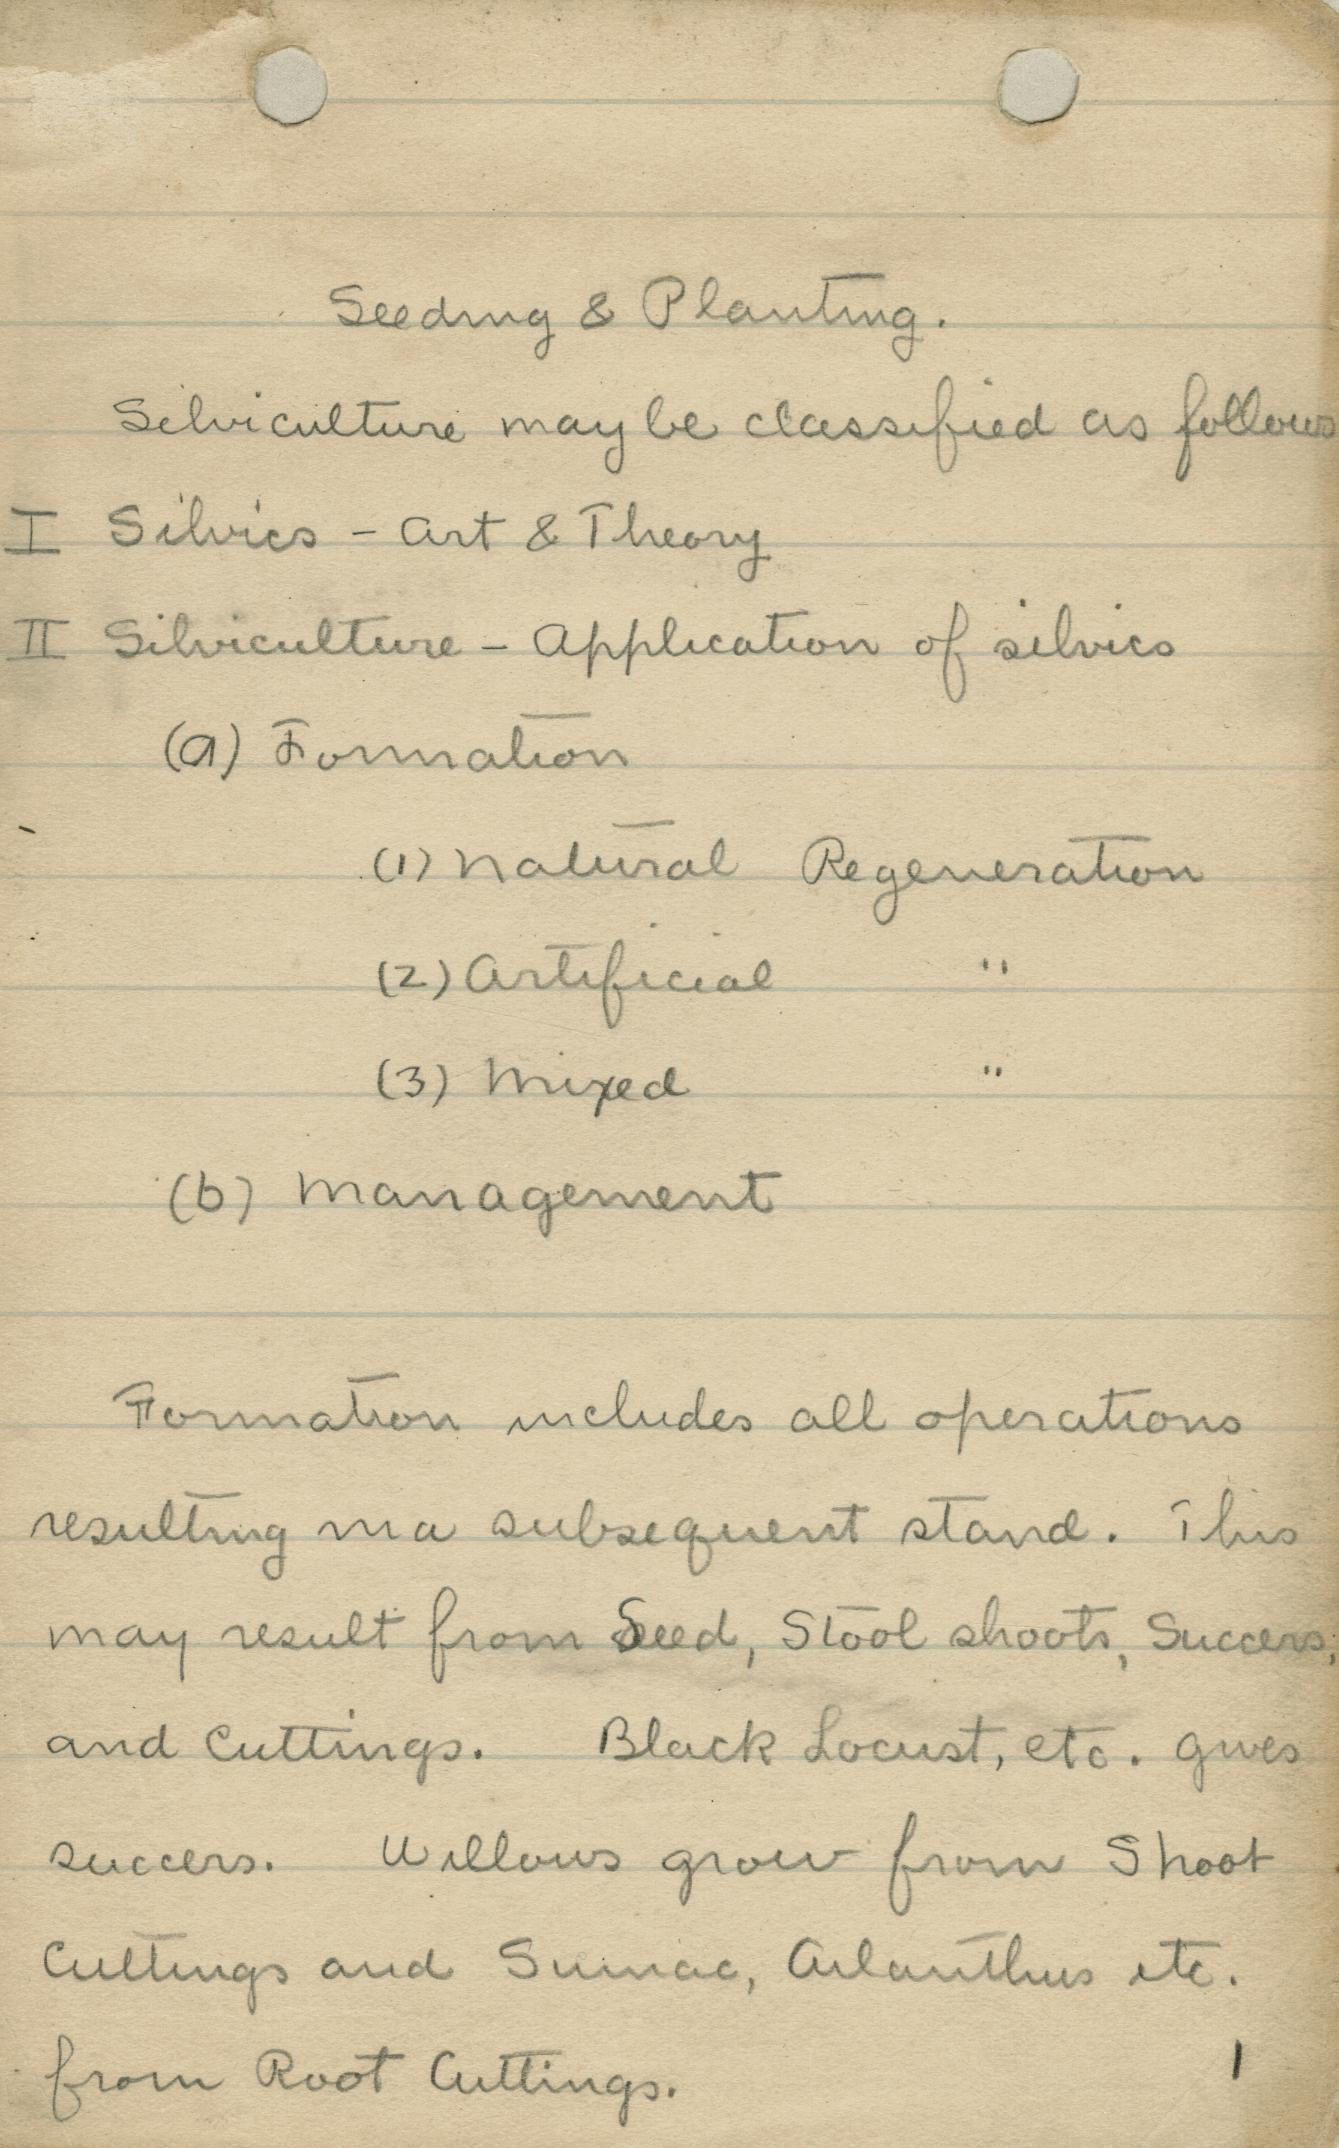 Seeding & Planting.
Silviculture may be classified as follows
I Silvics - Art & Theory
II Silviculture - Application of silvics
(a) Formation
(1) Natural Regeneration
(2) Artificial "
(3) Mixed "
(b) Management
Formation includes all operations
resulting in a subsequent stand. This
may result from Seed, Stool shoots, Succers,
and Cuttings. Black Locust, etc. gives
succers. Willows grow from Shoot
Cuttings and Sumac, Ailanthus etc.
from Root Cuttings.
1